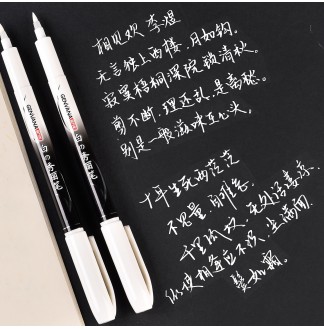 相见欢 李煜
无言独上西楼，月如钩。
寂寞梧桐深院锁清秋。
剪不断，理还乱，是离愁。
别是一般滋味在心头。
十年生死两茫茫
不思量，自难忘。
千里孤坟，无处话凄凉。
纵使相逢应不识，尘满面
鬓如霜。
GENVANA
白の秀丽笔
GENVANA
白の秀丽笔